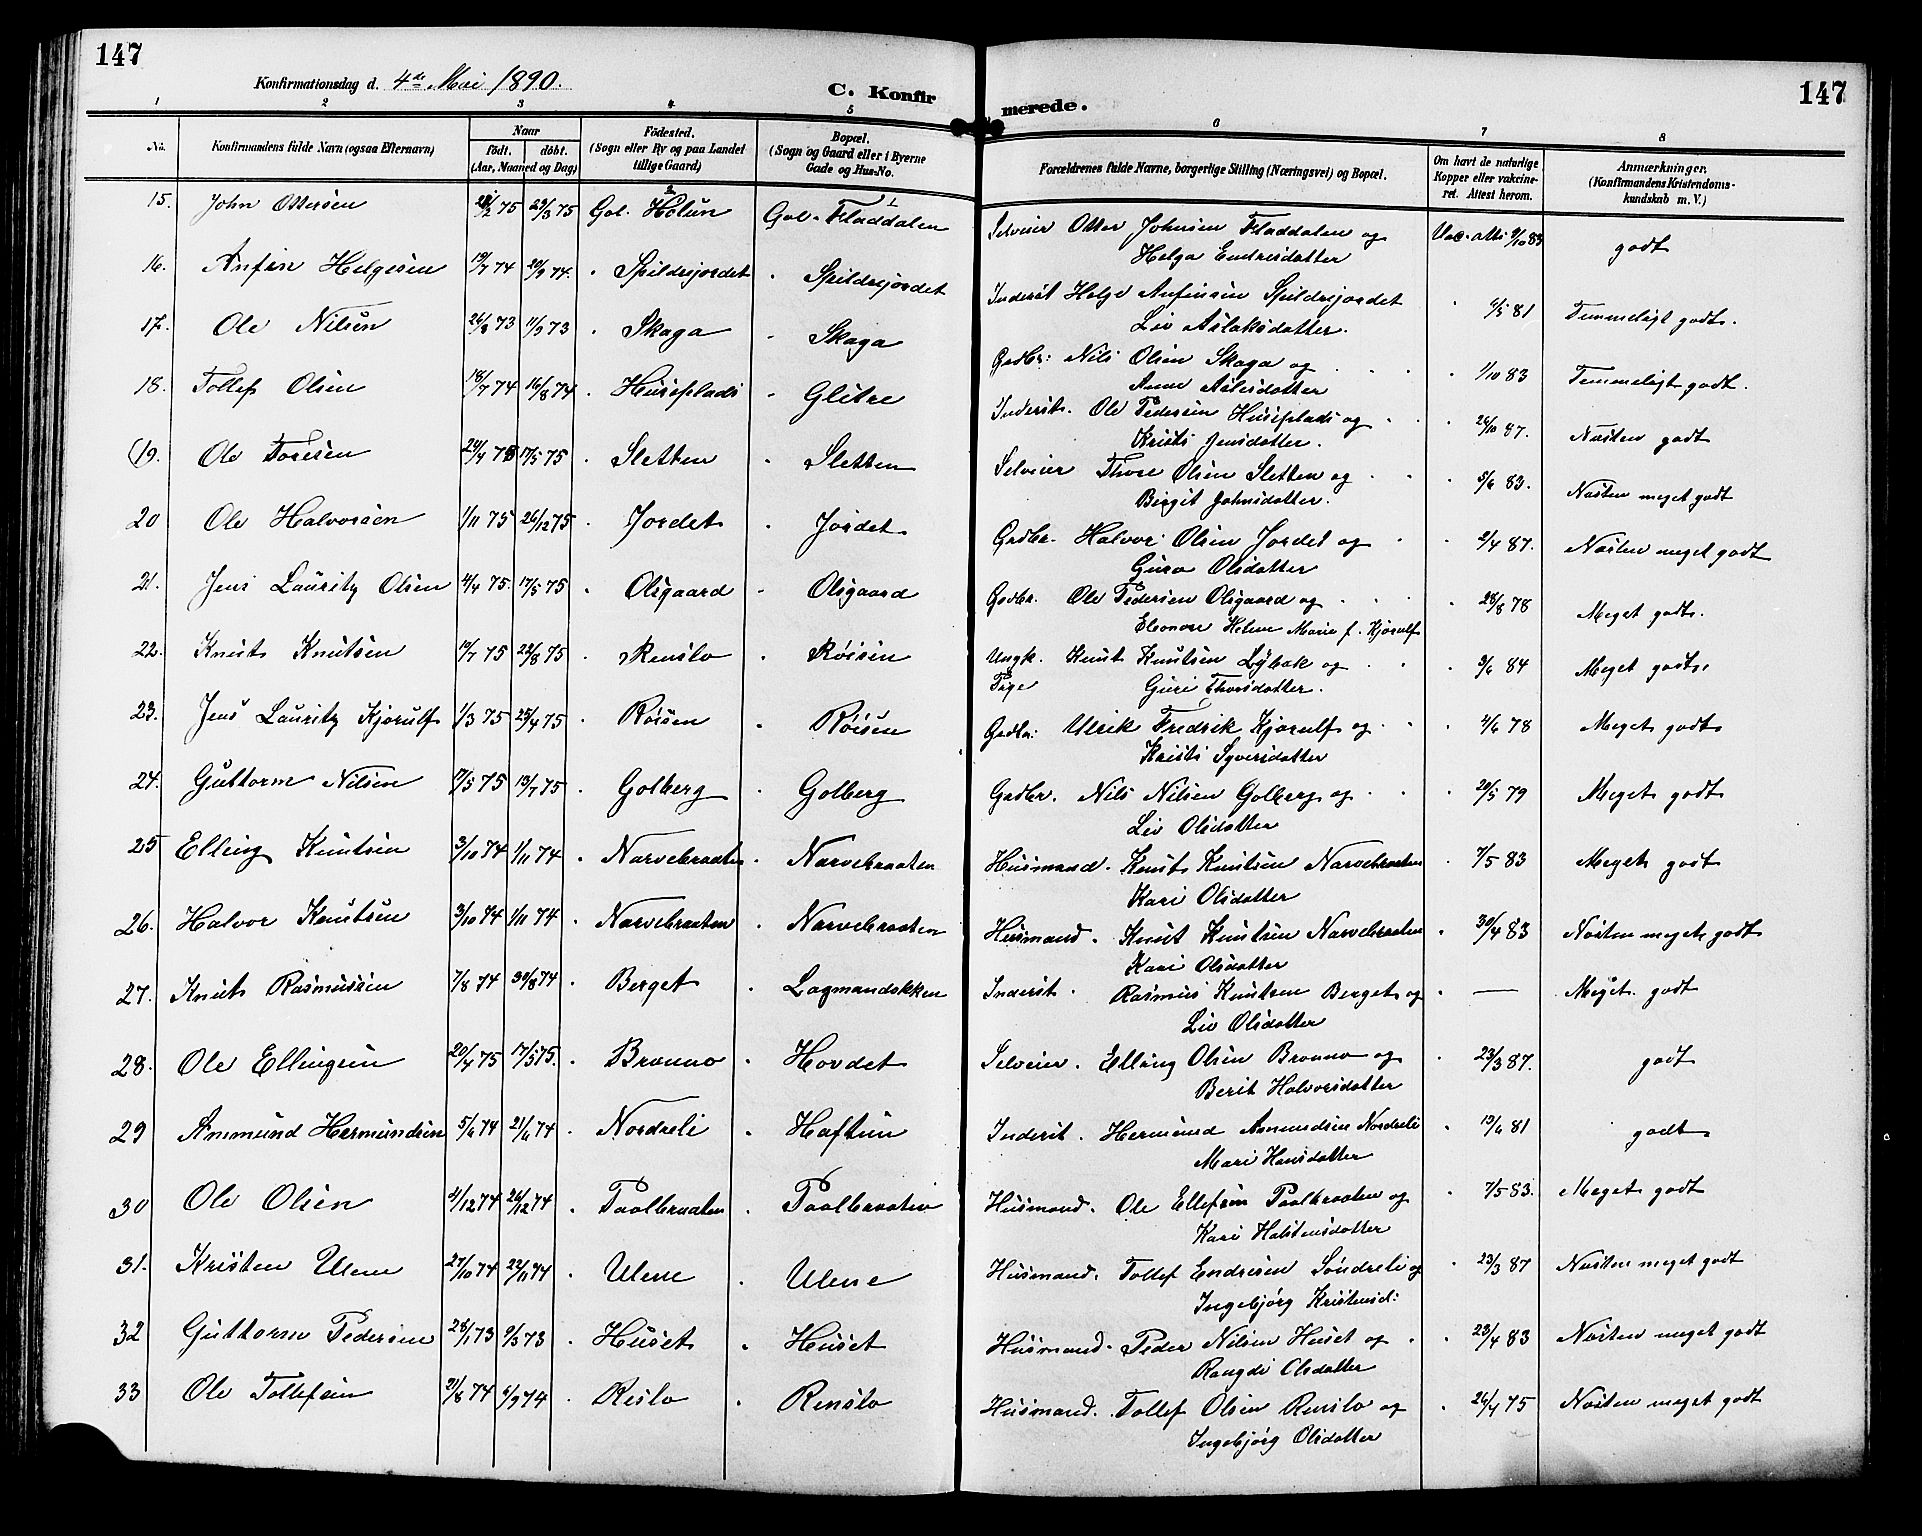 147
147
Konfirmationsdag d. 4de Mai 1890.
C. Konfirmerede.
1 2 3 4 5 6 7 8
No.
Konfirmandens fulde Navn (ogsaa Efternavn)
Naar
födt. döbt.
(Aar, Maaned og Dag)
Födested.
(Sogn eller By og paa Landet
tillige Gaard)
Bopæl.
(Sogn og Gaard eller i Byerne
Gade og Hus-No.
Forældrenes fulde Navne, borgerlige Stilling (Næringsvei) og Bopæl.
Om havt de naturlige
Kopper eller vakcine-
ret. Attest herom.
Anmærkninger.
(Konfirmandens Kristendoms-
kundskab m. V.)
15. John Ottersen 75 23/3 75 Gol. Holun Gol. Fladdalen Selveier Otter Johnsen Fladdalen og Vac. att. 9/10 83 godt
Helga Endresdatter
16. Anfin Helgesen 19/7 74 20/9 74. " Skildrsjordet " Skildrsjordet Inderst Helge Anfinsen Skildrsjordet " 81 Temmeligt godt.
Liv Aslaksdatter.
17. Ole Nilsen 26/8 73 11/9 73 " Skaga " Skaga Grdbr: Nils Olsen Skaga og " 1/10 83 Temmeligt godt.
Anne Aslesdatter
18. Tollef Olsen 18/7 74 16/8 74 " Huseplads " Glitre Inderst. Ole Pedersen Huseplads og " 26/10 87. Næsten godt
Kristi Jensdatter.
19. Ole Toresen 24/4 75 17/5 75 " Sletten " Sletten Selveier Thore Olsen Sletten og " 5/6 83. Næsten meget godt
Birgit Johnsdatter.
20 Ole Halvorsen 1/11 75 26/12 75 " Jordet " Jordet Grdbr. Halvor Olsen Jordet og " 2/4 87. Næsten meget godt
Guro Olsdatter
21. Jens Lauritz Olsen 4/4 75. 17/5 75 " Olsgaard " Olsgaard Grdbr. Ole Pedersen Olsgaard og " 28/8 78 Meget godt.
Eleonore Helene Marie f. Kjørulf
22. Knut Knutsen 17/7 75 22/8 75 " Renslo " Röisen Ungk. Knut Knutsen Lybæk og " 3/6 84 Meget godt.
Pige Guri Thorsdatter.
23. Jens Lauritz Kjørulf 1/3 75 25/4 75 " Röisen " Röisen Grdbr: Ulrik Fredrik Kjørulf og " 4/6 78 Meget godt
Kristi Syversdatter
24. Guttorm Nilsen 17/5 75 13/7 75 " Golberg " Golberg Grdbr. Nils Nilsen Golberg og " 20/5 79 Meget godt
Liv Olsdatter
25 Elling Knutsen 3/10 74 1/11 74 " Narvebraaten " Narvebraaten Husmand. Knut Knutsen Narvebraaten " 7/5 83 Meget godt
Kari Olsdatter
26. Halvor Knutsen 3/10 74 1/11 74 " Narvebraaten " Narvebraaten Husmand. Knut Knutsen Narvebraaten " 30/4 83 Næsten meget godt
Kari Olsdatter
27. Knut Rasmussen 7/8 74 30/8 74 " Berget " Lagmandsekken Inderst. Rasmus Knutsen Berget og " — Meget godt
Liv Olsdatter
28. Ole Ellingsen 20/4 75 17/5 75. " Brænno " Hovdet Selveier. Elling Olsen Brænno og " 23/3 87. godt
Berit Halvorsdatter
29 Ammund Hermundsen 5/6 74 21/6 74 " Nordreli " Haftun Inderst. Hermund Ammundsen Nordreli " 13/6 81 godt
Mari Hansdatter
30 Ole Olsen 4/12 74 26/12 74 " Paalbraaten " Paalbraaten Husmand. Ole Ellefsen Paalbraaten og " 7/5 83. Meget godt
Kari Halstensdatter
31. Kristen Ulene 27/10 74 22/11 74 " Ulene " Ulene Husmand. Tollef Endresen Söndreli og " 23/3 87 Næsten meget godt
Ingebjørg Kristensd:
32 Guttorm Pedersen 28/1 73 9/3 73 " Huset " Huset Husmand. Peder Nilsen Huset og " 23/4 83 Næsten meget godt
Rangdi Olsdatter
33 Ole Tollefsen 21/8 74 6/9 74 " Reslo " Renslo Husmand. Tollef Olsen Renslo og " 26/4 75 Næsten meget godt
Ingebjørg Olsdatter